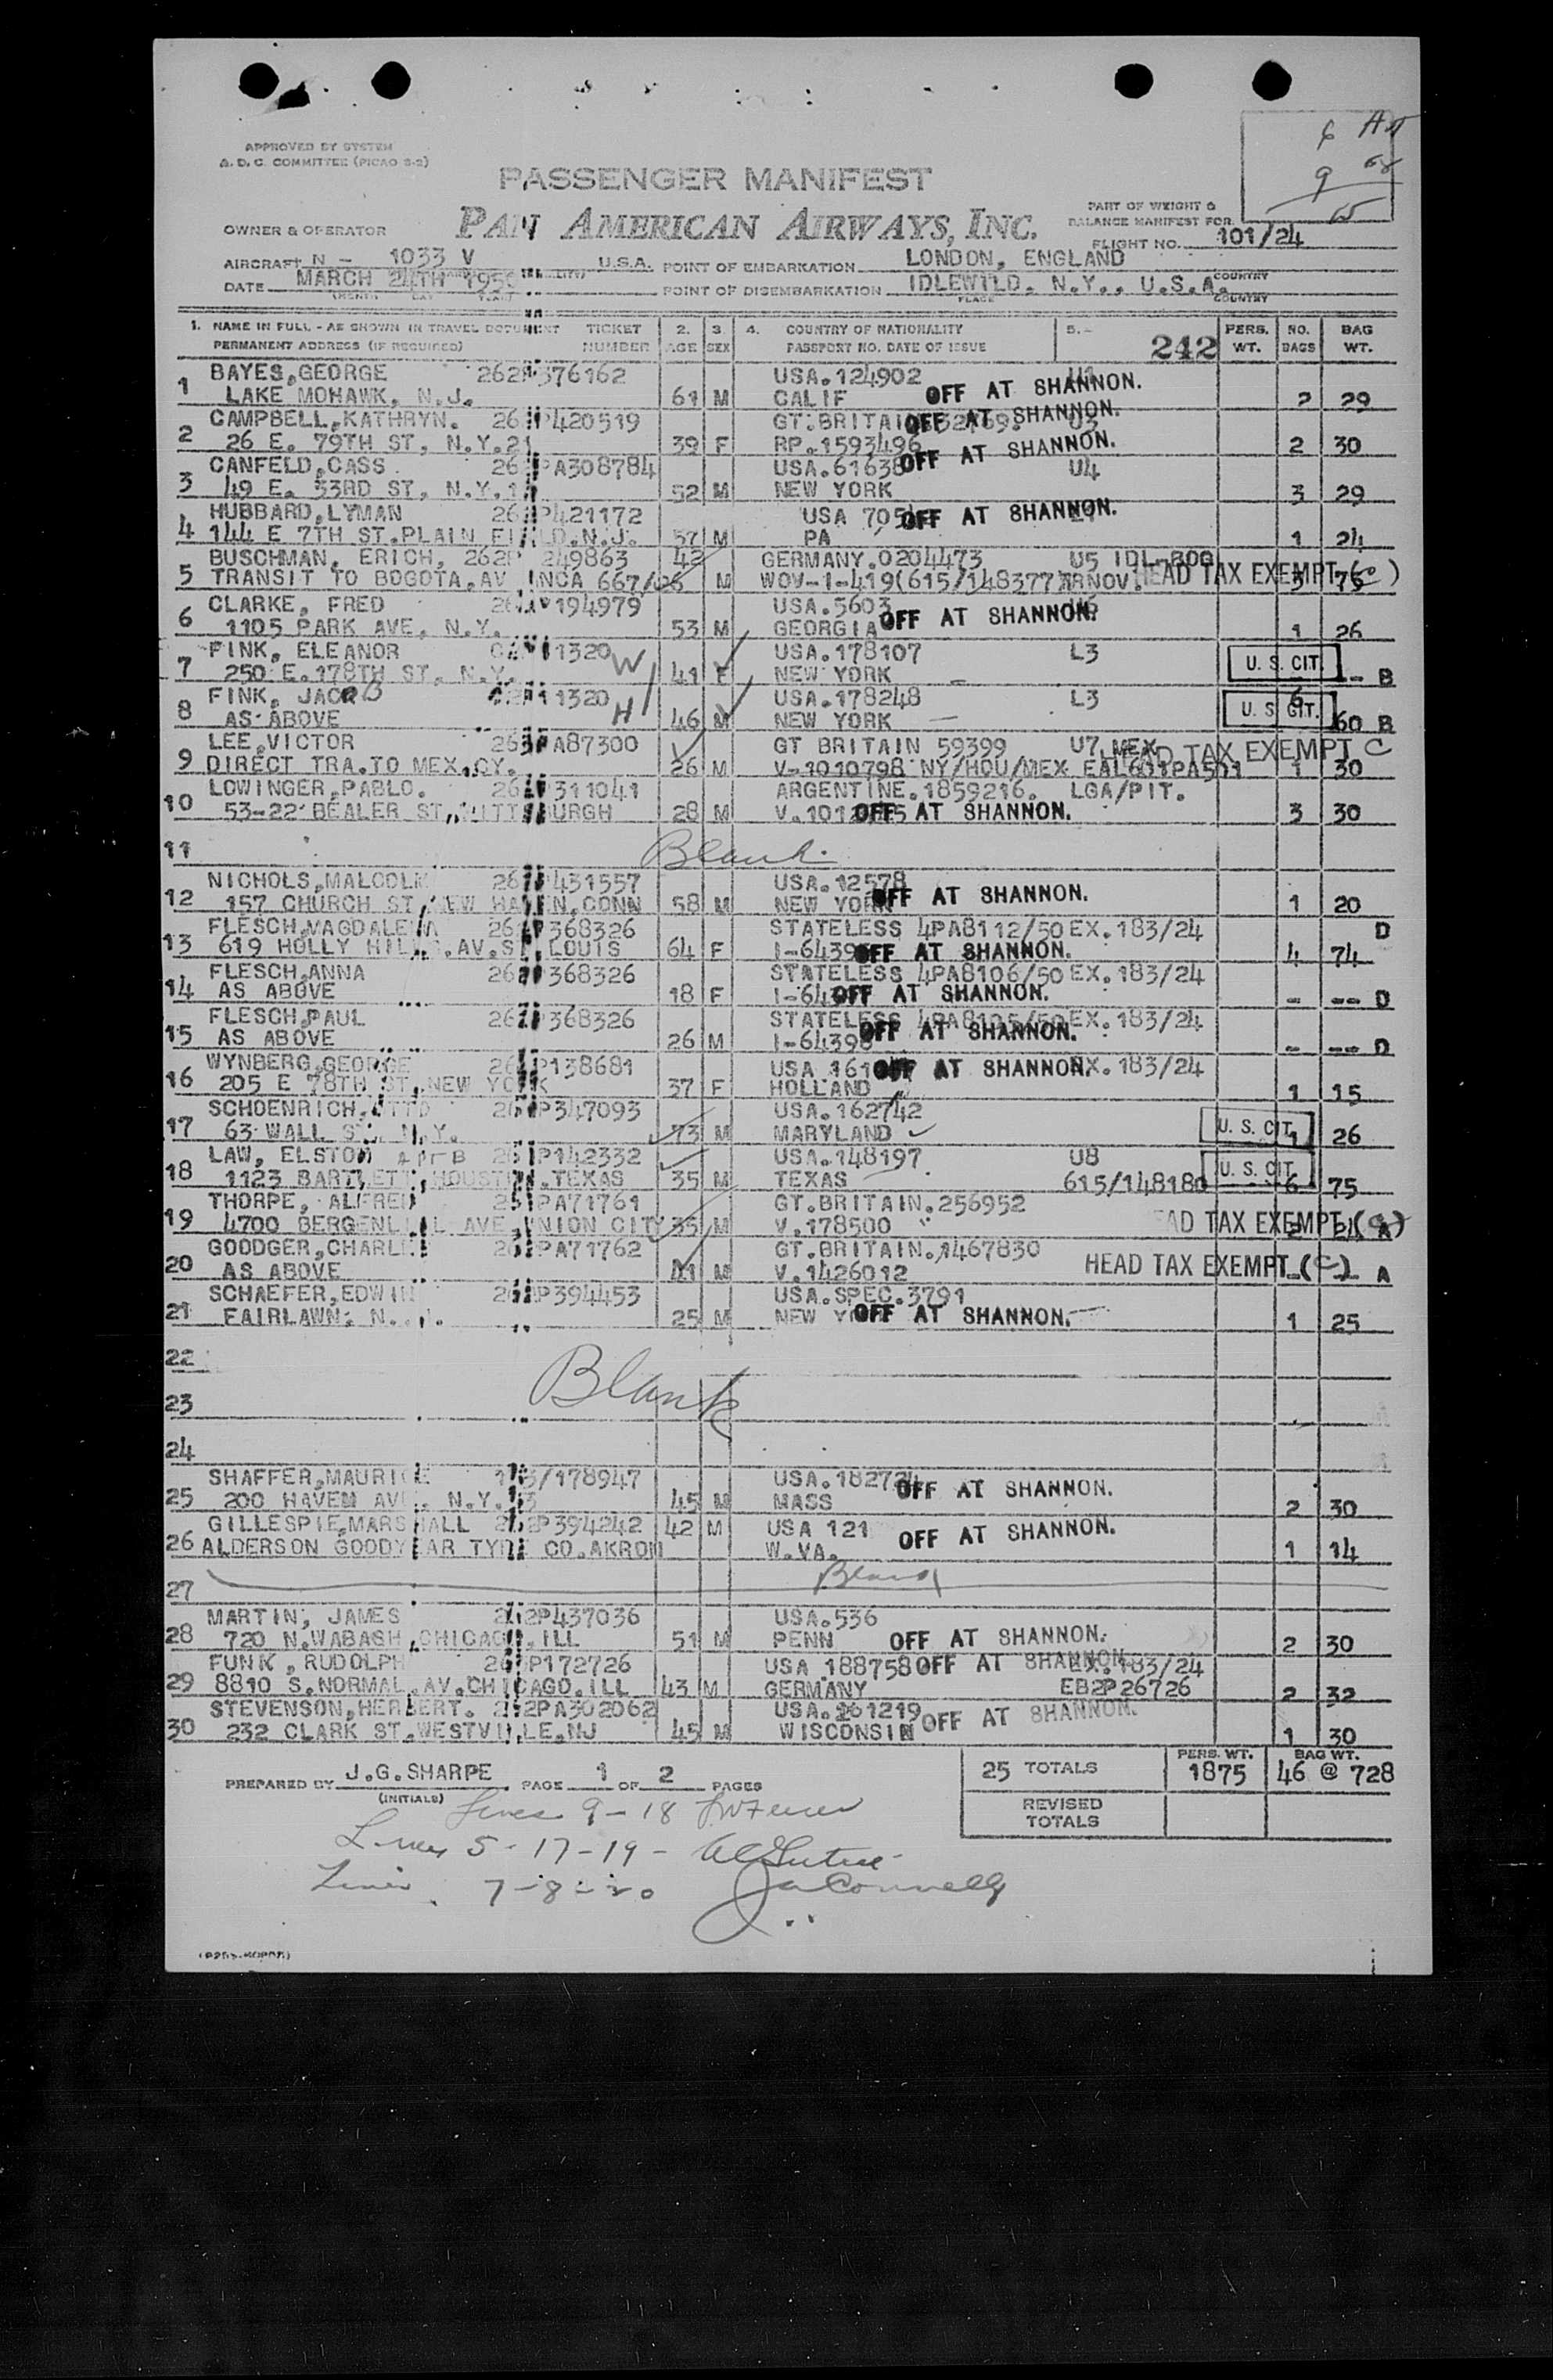 APPROVED BY SYSTEM
A. D. C. COMMITTEE (PICAO 3-2)
PASSENGER MANIFEST
PAN AMERICAN AIRWAYS, INC.
PART OF WEIGHT &
BALANCE MANIFEST FOR
OWNER & OPERATOR
FLIGHT NO. 101/24
AIRCRAFT N - 1033 V U.S.A. POINT OF EMBARKATION LONDON, ENGLAND
DATE MARCH 24TH 195 POINT OF DISEMBARKATION IDLEWILD. N.Y., U.S.A.
PLACE COUNTRY
1. NAME IN FULL - AS SHOWN IN TRAVEL DOCUMENT TICKET 2. 3. 4. COUNTRY OF NATIONALITY 5. PERS. NO. BAG
PERMANENT ADDRESS (IF REQUIRED) NUMBER AGE SEX PASSPORT NO. DATE OF ISSUE 242 WT. BAGS WT.
BAYES,GEORGE 262P376162 USA.124902
1 LAKE MOHAWK, N.J. 61 M CALIF OFF AT SHANNON. 2 29
CAMPBELL,KATHRYN. 26 P420519 GT.BRITAI OFF AT SHANNON. U3
2 26 E. 79TH ST, N.Y.21 39 F RP.1593496 2 30
CANFELD,CASS 26 PA308784 USA.61638 OFF AT SHANNON. U4
3 49 E. 53RD ST, N.Y.1 52 M NEW YORK 3 29
HUBBARD,LYMAN 26 P421172 USA 705 OFF AT SHANNON.
4 144 E 7TH ST.PLAIN FI LD.N.J. 57 M PA 1 24
BUSCHMAN, ERICH, 262P 249863 42 GERMANY.0204473 U5 IDL-BOG
5 TRANSIT TO BOGOTA.AV INCA 667/26 M WOV-1-419(615/148377 ARNOV. HEAD TAX EXEMPT (C) 3 75
CLARKE, FRED 194979 USA.5603
6 1105 PARK AVE, N.Y. 53 M GEORGIA OFF AT SHANNON. 1 26
FINK, ELEANOR 11320 W USA.178107 L3 U. S. CIT.
7 250 E.178TH ST, N.Y. 41 F NEW YORK - B
FINK, JACOB 11320 H USA.178248 L3 6
8 AS ABOVE 46 M NEW YORK U. S. CIT. 60 B
LEE,VICTOR 26 PA87300 GT BRITAIN 59399 U7 MEX HEAD TAX EXEMPT C
9 DIRECT TRA.TO MEX.CY. 26 M V-1010798 NY/HOU/MEX EAL601PA501 1 30
LOWINGER,PABLO. 26 311041 ARGENTINE.1859216. LGA/PIT.
10 53-22 BEALER ST, PITTSBURGH 28 M V.1012 OFF AT SHANNON. 3 30
11 Blank
NICHOLS,MALCOLM 26 P431557 USA.12578
12 157 CHURCH ST,NEW HAVEN,CONN 58 M NEW YORK OFF AT SHANNON. 1 20
FLESCH,MAGDALENA 26 P368326 STATELESS 4PA8112/50 EX.183/24 D
13 619 HOLLY HILLS.AV.ST.LOUIS 64 F I-6439 OFF AT SHANNON. 4 74
FLESCH,ANNA 26 P368326 STATELESS 4PA8106/50 EX.183/24
14 AS ABOVE 18 F I-64 OFF AT SHANNON. - -- D
FLESCH,PAUL 26 P368326 STATELESS 4PA8105/50 EX.183/24
15 AS ABOVE 26 M I-64398 OFF AT SHANNON. - -- D
WYNBERG,GEORGE 26 P138681 USA 161 OFF AT SHANNON EX.183/24
16 205 E 78TH ST.NEW YORK 37 F HOLLAND 1 15
SCHOENRICH,OTTO 26 P347093 USA.162742
17 63 WALL ST. N.Y. 73 M MARYLAND U. S. CIT. 1 26
LAW, ELSTON 26 P142332 USA.148197 U8
18 1123 BARTLETT,HOUSTON.TEXAS 35 M TEXAS 615/148180 U. S. CIT. 6 75
THORPE, ALFRED 26 PA71761 GT.BRITAIN.256952
19 4700 BERGENLINE AVE,UNION CITY 35 M V.178500 HEAD TAX EXEMPT (C) A
GOODGER,CHARLES 26 PA71762 GT.BRITAIN.1467830
20 AS ABOVE 41 M V.1426012 HEAD TAX EXEMPT (C) - A
SCHAEFER,EDWIN 26 P394453 USA.SPEC.3791
21 FAIRLAWN, N.J. 25 M NEW YORK OFF AT SHANNON. 1 25
22
23 Blank
24
SHAFFER,MAURICE /178947 USA.182724
25 200 HAVEN AVE. N.Y. 45 M MASS OFF AT SHANNON. 2 30
GILLESPIE,MARSHALL 262P394242 42 M USA 121
26 ALDERSON GOODYEAR TYRE CO.AKRON W.VA. OFF AT SHANNON. 1 14
27 Blank
MARTIN, JAMES 262P437036 USA.536
28 720 N.WABASH,CHICAGO,ILL 51 M PENN OFF AT SHANNON. 2 30
FUNK,RUDOLPH 262P172726 USA.188758 OFF AT SHANNON EX.183/24
29 8810 S.NORMAL.AV.CHICAGO.ILL 43 M GERMANY EB2P26726 2 32
STEVENSON,HERBERT. 262PA302062 USA.161219
30 232 CLARK ST.WESTVILLE,NJ 45 M WISCONSIN OFF AT SHANNON. 1 30
PREPARED BY J.G.SHARPE PAGE 1 OF 2 PAGES
(INITIALS)
25 TOTALS PERS. WT. 1875 BAG WT. 46 @ 728
REVISED
TOTALS
Lines 9-18
Lines 5-17-19-
Lines 7-8-20 Connelly